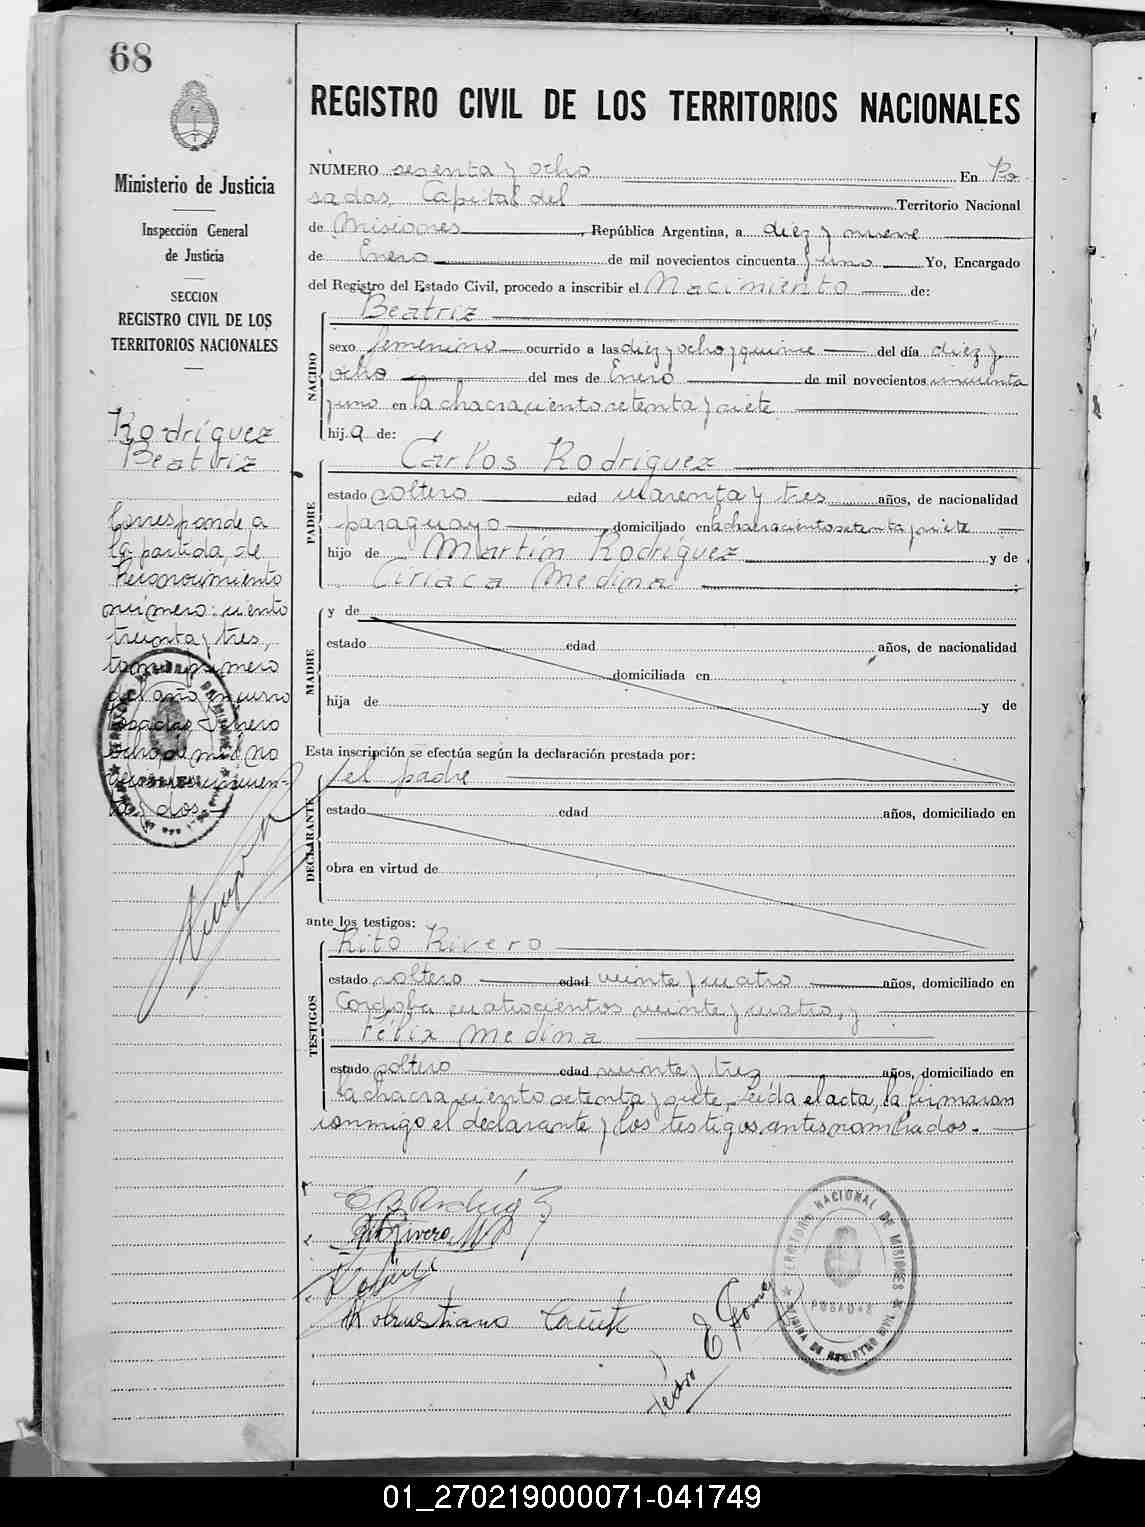 68
Ministerio de Justicia
Inspección General
de Justicia
SECCION
REGISTRO CIVIL DE LOS
TERRITORIOS NACIONALES
Rodríguez
Beatriz
Corresponde a
la partida de
Reconocimiento
número: ciento
treinta y tres,
tomo primero
del año en curso
Posadas Enero
ocho de mil no
vecientos cincuen-
ta y dos.
REGISTRO CIVIL DE LOS TERRITORIOS NACIONALES
NÚMERO sesenta y ocho En Po
sadas Capital del Territorio Nacional
de Misiones, República Argentina, a diez y nueve
de Enero de mil novecientos cincuenta y uno Yo, Encargado
del Registro del Estado Civil, procedo a inscribir el Nacimiento de:
Beatriz
NACIDO
sexo femenino ocurrido a las diez y ocho y quince del día diez y
ocho del mes de Enero de mil novecientos cincuenta
y uno en la chacra ciento setenta y siete
hija de:
Carlos Rodríguez
PADRE
estado soltero edad cuarenta y tres años, de nacionalidad
paraguayo, domiciliado en la chacra ciento setenta y siete
hijo de Martín Rodríguez y de
Ciriaca Medina
MADRE
y de
estado edad años, de nacionalidad
domiciliada en
hija de y de
Esta inscripción se efectúa según la declaración prestada por:
el padre
DECLARANTE
estado edad años, domiciliado en
obra en virtud de
ante los testigos:
Rito Rivero
TESTIGOS
estado soltero edad veinte y cuatro años, domiciliado en
Córdoba cuatrocientos veinte y cuatro, y
Félix Medina
estado soltero edad veinte y tres años, domiciliado en
la chacra ciento setenta y siete, Leída el acta, la firmaron
conmigo el declarante y los testigos antes nombrados.
TERRITORIO NACIONAL DE MISIONES
POSADAS
OFICINA DE REGISTRO CIVIL
Pedro E Gomez
01_270219000071-041749